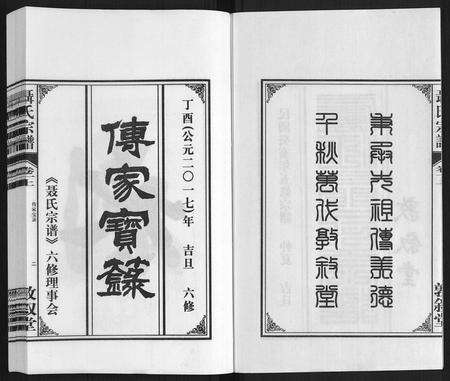 聶氏宗譜
敦叙堂
秉承先祖傳美德
千秋萬代敦敘堂
丁酉(公元二〇一七)年 吉旦 六修
傳家寶籙
《聂氏宗谱》六修理事会
聶氏宗譜
敦叙堂